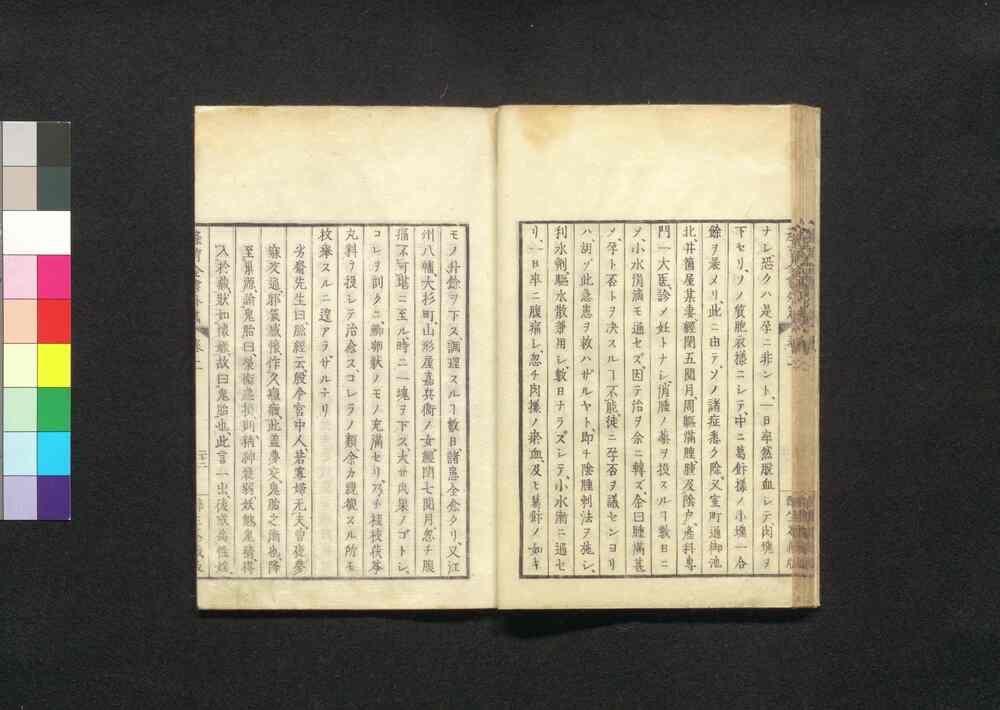 ナレ恐クハ是孕ニ非ント、一日卒然脱血シテ肉塊ヲ
下セリ、ソノ質胞衣様ニシテ、中ニ葛餅様ノ小塊一合
餘ヲ裹メリ、此ニ由テ、ソノ諸症悉ク除、又室町通御池
北、井筒屋某妻經閉五閲月、周軀滿腫、腫及陰戸、產科專
門一大医、診メ妊トナシ、消腫ノ藥ヲ投スルヿ數日ニ
メ、小水涓滴モ通セズ、因テ治ヲ余ニ轉ズ、余曰腫滿甚
メ、孕ト否トヲ决スルヿ不能、徒ニ孕否ヲ議センヨリ
ハ、胡ゾ此急患ヲ救ハザルヤト、即チ陰腫刺法ヲ施シ、
利水劍、驅水散兼用シ、數日ナラズシテ、小水漸ニ通セ
リ、一日卒ニ腹痛シ、忽チ肉様ノ瘀血、及ヒ葛餅ノ如キ
モノ升餘ヲ下ス、調理スルヿ數日、諸患全愈タリ、又江
州八幡、大杉町、山形屋嘉兵衛ノ女、經閉七閲月、忽チ腹
痛不可堪ニ至ル、時ニ一塊ヲ下ス、大サ肉果ノゴトシ、
コレヲ割クニ、鰤卵狀ノモノ充滿セリ、乃チ桂枝茯苓
丸料ヲ投レテ治愈ス、コレラノ類余カ親覩スル所モ
枚擧スルニ遑アラザルナリ
劣齋先生曰、脉經云、殷令宮中人、若寡婦无夫、曽夜夢
寐交通、邪氣或懷作久癥瘕、此蓋夢交鬼胎之漸也、降
至巢源論鬼胎曰、榮衛虚損、則精神衰弱、妖魅鬼精、得
入於藏、狀如懷娠、故曰鬼胎也、此言一出、後或高性婬